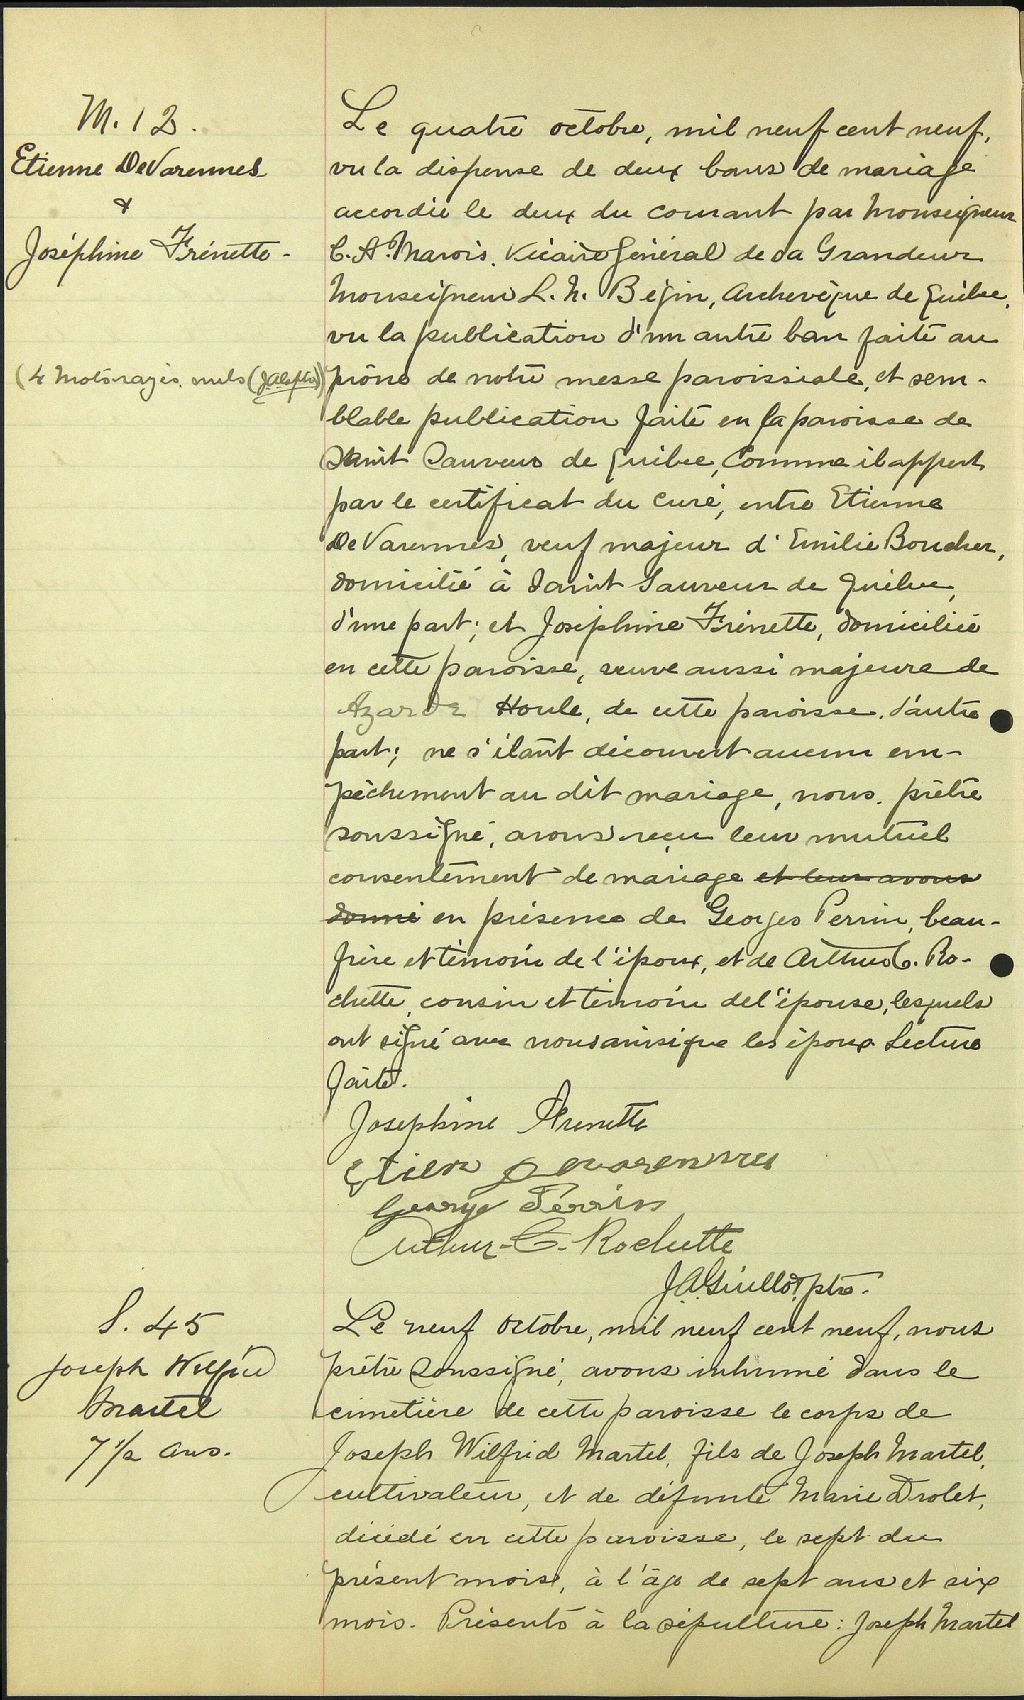 M. 12.
Etienne DeVarennes
&
Joséphine Frénette -
(4 mots rayés nuls
Le quatre octobre, mil neuf cent neuf,
vu la dispense de deux bans de mariage
accordée le deux du courant par Monseigneur
C. A. Marois, Vicaire Général de Sa Grandeur
Monseigneur L. N. Bégin, Archevêque de Québec,
vu la publication d'un autre ban faite au
prône de notre messe paroissiale, et sem-
blable publication faite en la paroisse de
Saint Sauveur de Québec, comme il appert
par le certificat du curé, entre Etienne
DeVarennes, veuf majeur d'Emilie Boucher,
domicilié à Saint Sauveur de Québec,
d'une part; et Joséphine Frénette, domiciliée
en cette paroisse, veuve aussi majeure de
Azarde Houle, de cette paroisse, d'autre
part; ne s'étant découvert aucun em-
pêchement au dit mariage, nous, prêtre
soussigné, avons reçu leur mutuel
consentement de mariage et leur avons
donné en présence de Georges Perrin, beau-
frère et témoin de l'époux, et de Arthur C. Ro-
chette, cousin et témoin de l'épouse, lesquels
ont signé avec nous ainsi que les époux. Lecture
faite.
Josephine Frenette
Etien Devarennes
George Perrin
Arthur-C. Rochette
J.A. Guillot, ptre.
S. 45
Joseph Wilfrid
Martel
7 1/2 ans.
Le neuf octobre, mil neuf cent neuf, nous
prêtre soussigné, avons inhumé dans le
cimetière de cette paroisse le corps de
Joseph Wilfrid Martel, fils de Joseph Martel,
cultivateur, et de défunte Marie Drolet,
décédé en cette paroisse, le sept du
présent mois, à l'âge de sept ans et six
mois. Présents à la sépulture: Joseph Martel